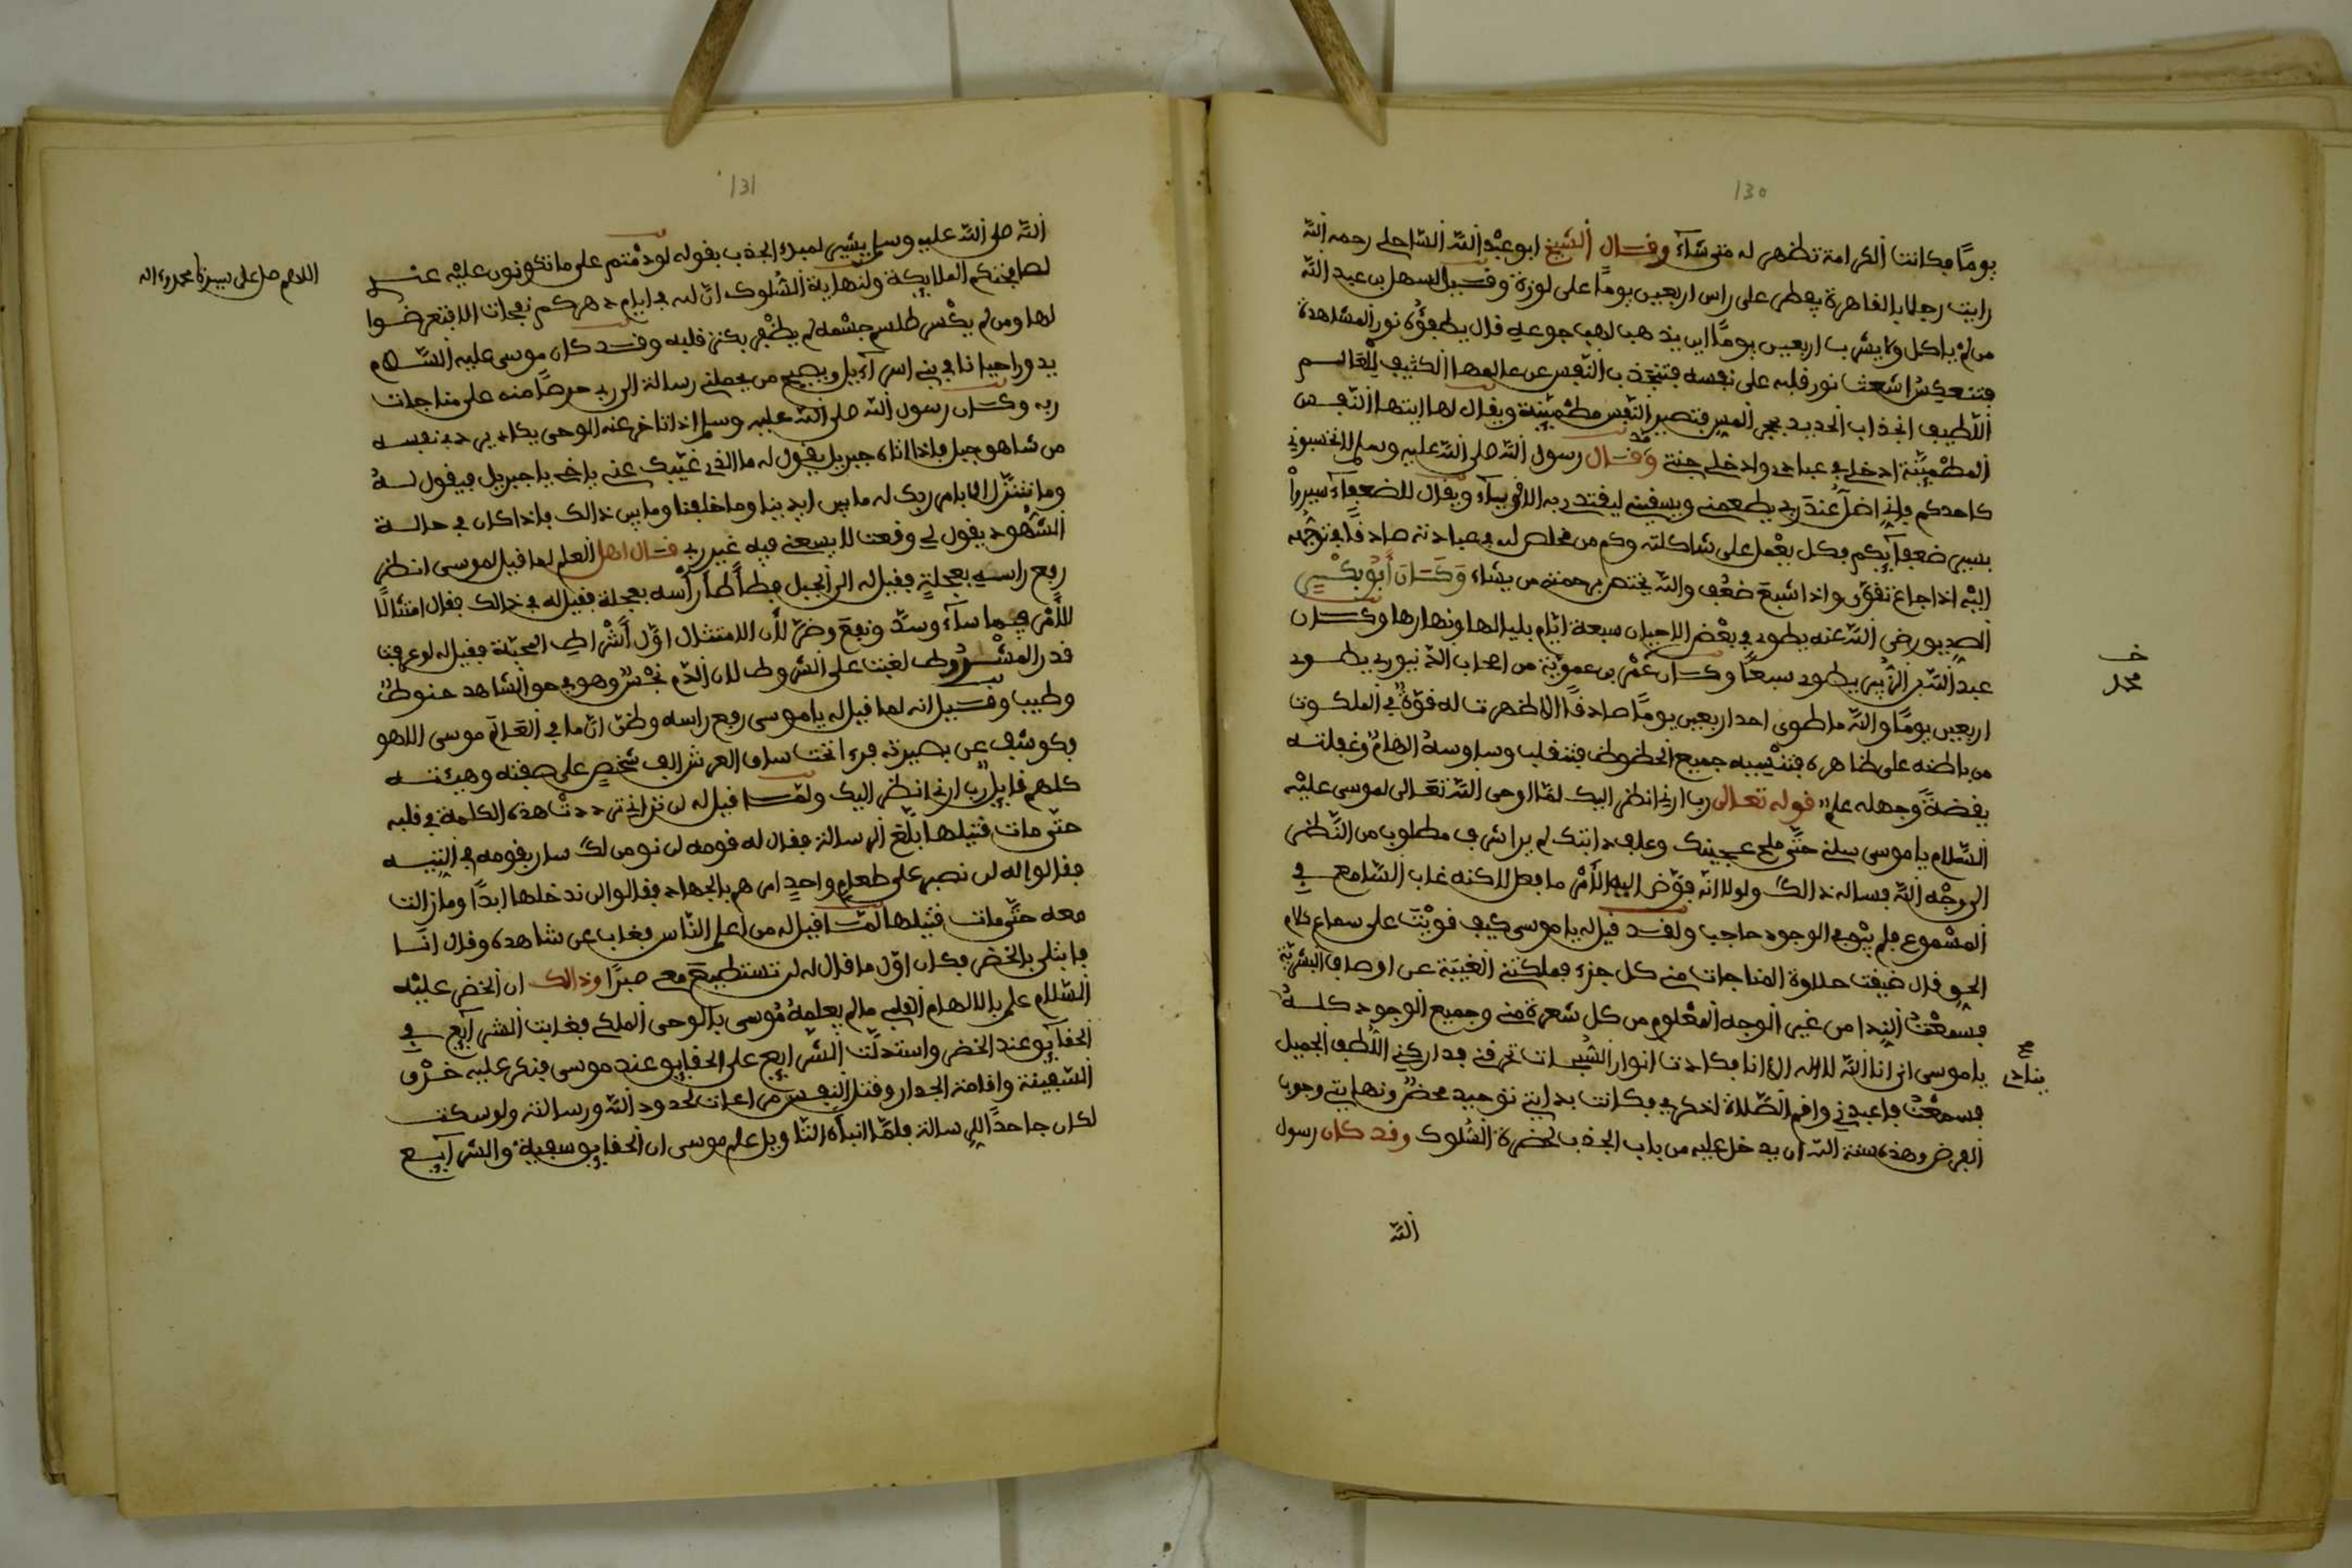 130
يومًا فكانت الكرامة تظهر له متى شآء وقال الشيخ ابو عبد الله الساحلي رحمه الله
رايت رجلا بالقاهرة يفطر على راس اربعين يومًا على لوزة وقيل لسهل بن عبد الله
من لم ياكل ولا يشرب اربعين يومًا اين يذهب لهب جوعه قال يطفؤه نور المشاهدة
فتنعكس اشعة نور قلبه على نفسه فتنجذب النفس عن عالمها الكثيف للعالم
اللطيف انجذاب الحديد بحجر المس فتصير النفس مطمئنة ويقال لها ايتها النفس
المطمئنة ادخلي في عبادي وادخلي جنتي وقد قال رسول الله صلى الله عليه وسلم لا تحسبوني
كاحدكم فإني اظل عند ربي يطعمني ويسقيني ليقتدي به الاقويآء ويقال للضعفآء سيروا
بسير ضعفآئكم فكل يعمل على شاكلته وكم من مخلص لله في عبادته صادقًا في توجهه
اليه اذا جاع تقوى واذا شبع ضعف والله يختص برحمته من يشاء وكان أبو بكر
الصديق رضي الله عنه يطوي في بعض الاحيان سبعة ايام بلياليها ونهارها وكان
عبد الله بن الزبير يطوي سبعًا وكان عمر بن عموية من اصحاب الدينوري يطوي
خـ
محمد
اربعين يومًا والله ما طوى احد اربعين يومًا صادقًا الا ظهرت له قوة في الملكوت
من باطنه على ظاهره فتنسيه جميع الحظوظ فتنقلب وساوسه الهام وغفلته
يقضة وجهله علم قوله تعالى رب ارني انظر اليك لمّا اوحى الله تعالى لموسى عليه
السلام يا موسى سلني حتى ملح عجينك وعلف دابتك لم ير اشرف مطلوب من النظر
الى وجه الله فساله ذالك ولولا انه فوّض اليه الأمر ما فعل لاكنه غاب السامع في
المسموع فلم يبق في الوجود حاجب ولقد قيل له يا موسى كيف قويت على سماع كلام
الحق قال ضيفت حلاوة المناجات مني كل جزء فملكتني الغيبة عن اوصاف البشرية
فسمعت الندا من غير الوجه المعلوم من كل شعرة مني وجميع الوجود كله
يا موسى اني انا الله لا اله الا انا فكادت انوار السبحات تحرقني فداركني اللطف الجميل
فسمعت فاعبدني واقم الصلاة لذكري فكانت بدايتي توحيد محض ونهايتي وجوب
الفرض وهذه سنة الله ان يدخل عليه من باب الجذب لحضرة السلوك وقد كان رسول
الله
131
الله صلى الله عليه وسلم يشير لمبدء الجذب بقوله لو دمتم على ما تكونون عليه عندي
اللاهم صل على سيدنا محمد وءاله
لصافحتكم الملايكة ولنهاية السلوك ان لله في ايام دهركم نفحات الا فتعرضوا
لها ومن لم يكسر طلسم جسمه لم يظفر بكنز قلبه وقد كان موسى عليه السلام
يدور احيانا في بني اسرآءيل ويصيح من يحملني رسالة الى ربي حرصًا منه على مناجات
ربه وكان رسول الله صلى الله عليه وسلم اذا تاخر عنه الوحي يكاد يردي نفسه
من شاهق جبل فاذا اتاه جبريل يقول له ما الذي غيّبك عني ياخي يا جبريل فيقول له
وما نتنزل الا بامر ربك له ما بين ايدينا وما خلفنا وما بين ذالك فاذا كان في حالة
الشهود يقول لي وقت لا يسعني فيه غير ربي قال اهل العلم لما قيل لموسى انظر
رفع راسه بعجلة فقيل له الى الجبل فطأطأ رأسه بعجلة فقيل له في ذالك فقال امتثالًا
للأمر فيما سآء وسرّ ونفع وضرّ لأن الامتثال اوّل أشراط المحبّة فقيل له لو عرفت
قدر المشروط لغبت على الشروط لان الدم نجس وهو في حق الشاهد حنوط
وطيب وقيل انه لما قيل له يا موسى رفع راسه وظن ان ما في العالم موسى الا هو
فكوشف عن بصيرته فرءا تحت ساق العرش الف شخص على صفته وهيئته
كلهم قايل رب ارني انظر اليك ولما قيل له لن تراني ترددت هذه الكلمة في قلبه
حتى مات فتيلها ابلّغ الرسالة فقال له قومه لن نومن لك سار بقومه في التيه
فقالوا له لن نصبر على طعام واحد امرهم بالجهاد فقالوا لن ندخلها ابدًا وما زالت
معه حتى مات فتيلها لما قيل له من اعلم الناس فغاب عن شاهده وقال انا
فابتلي بالخضر فكان اوّل ما قال له لن تستطيع معي صبرًا وذالك ان الخضر عليه
السلام علم بالالهام القلبي ما لم يعلمه موسى بالوحي الملكي فغابت الشرايع في
الحقايق عند الخضر واستدلّت الشرايع على الحقايق عند موسى فنكر عليه خرق
السفينة واقامة الجدار وقتل النفس مراعات لحدود الله ورسالته ولو سكت
لكان جاحدًا للرسالة فلمّا انبأه التاويل علم موسى ان الحقايق سفينة والشرآيع